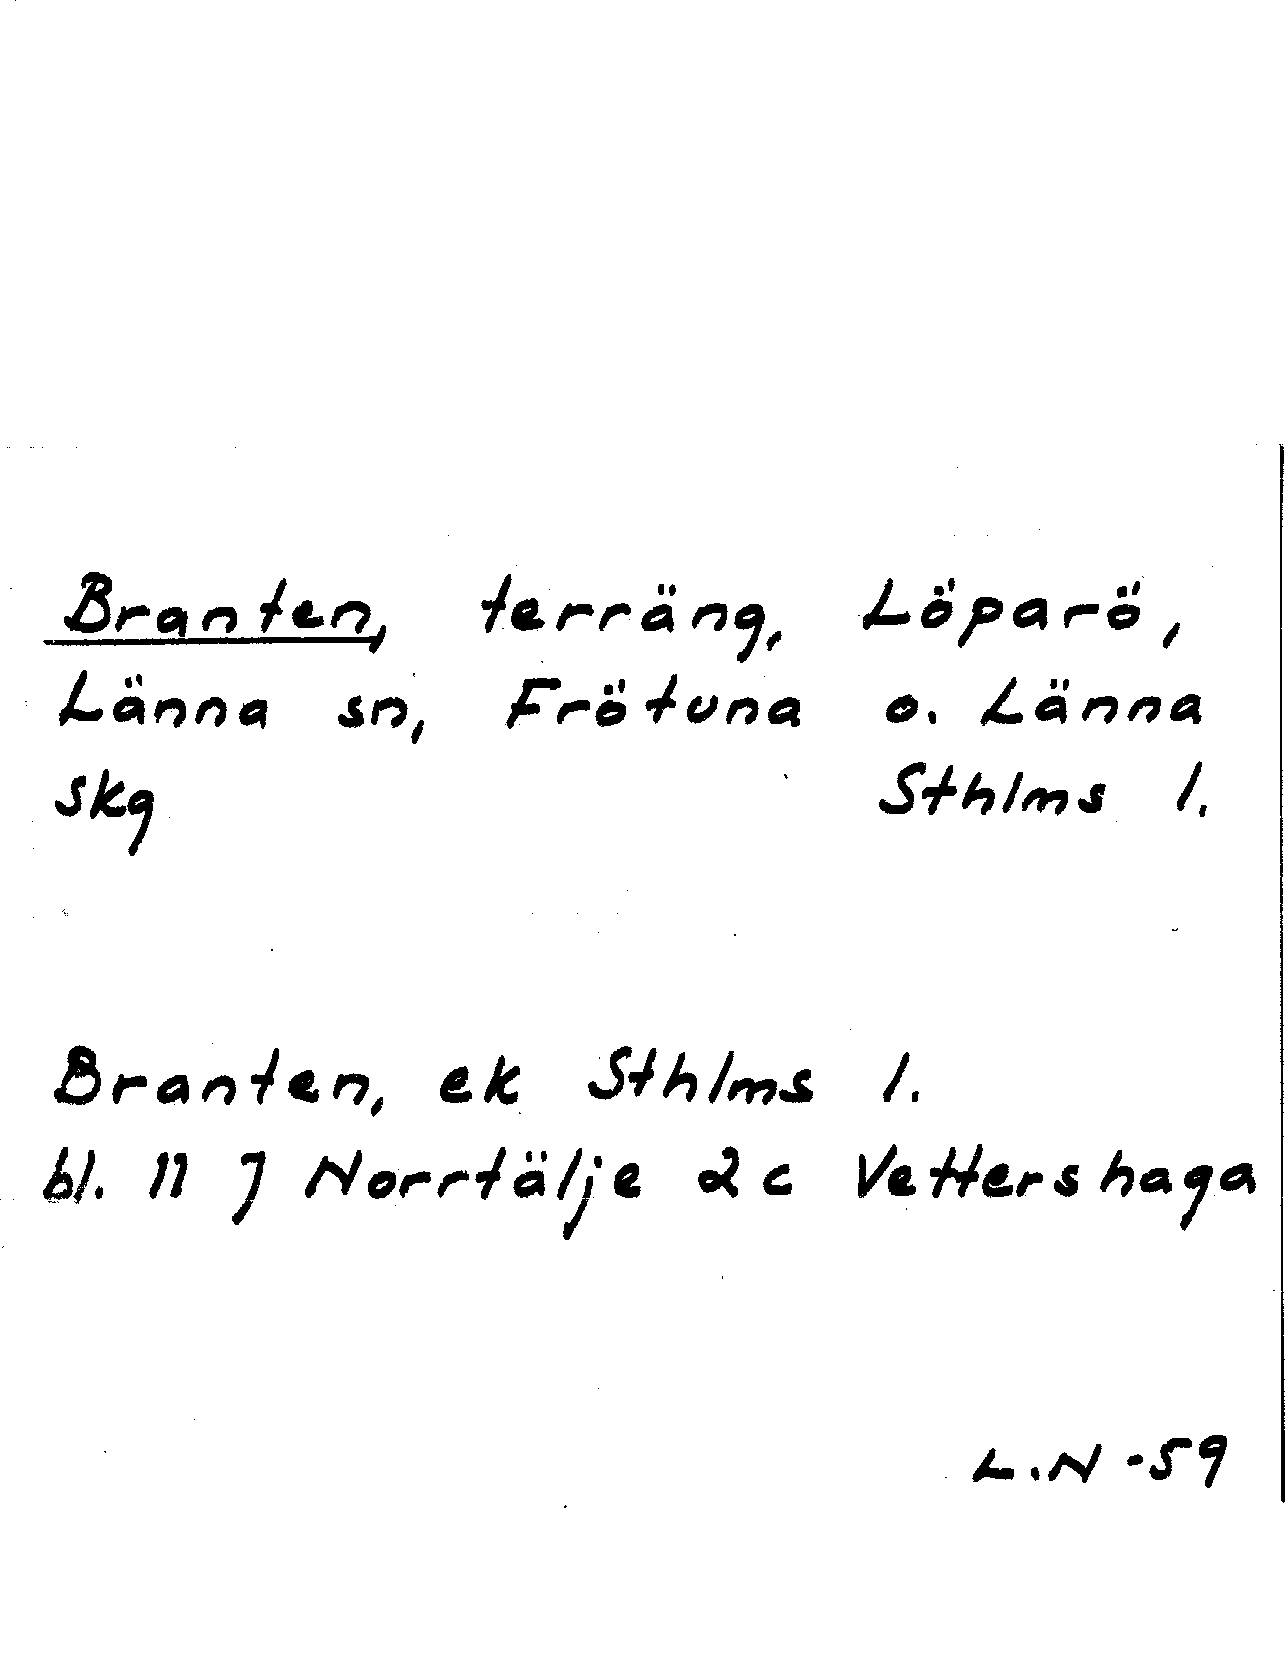 Branten, terräng, Löparö,
Länna sn, Frötuna o. Länna
skg Sthlms l.
Branten, ek Sthlms l.
bl. 11 J Norrtälje 2c Vettershaga
L.N -59